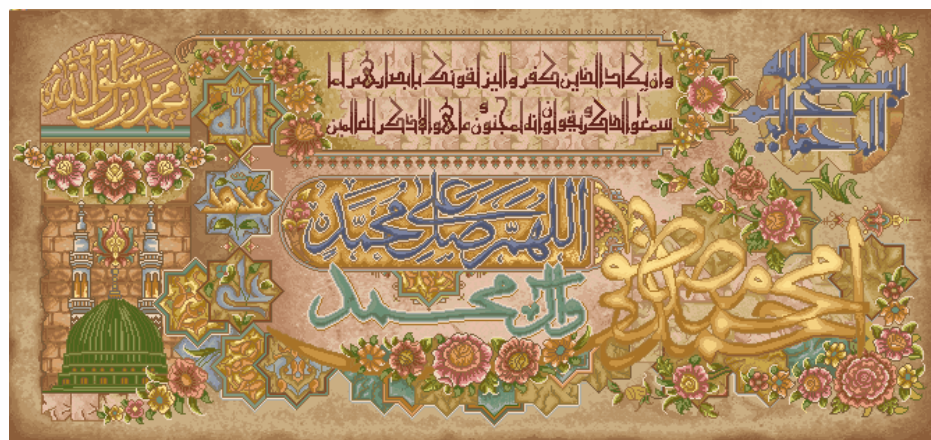 بسم الله
الرحمن الرحیم
وان یکاد الذین کفروا لیزلقونک بابصارهم لما
سمعوا الذکر و یقولون انه لمجنون و ما هو الا ذکر للعالمین
محمد رسول الله
الله
محمد
علی
اللهم صل علی محمد
وآل محمد